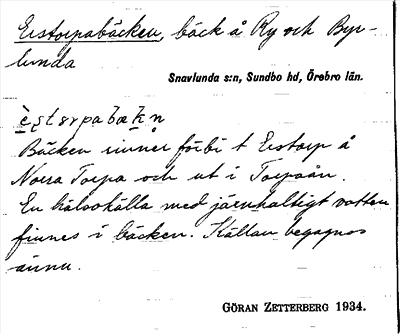 Eestorpabäcken, bäck å Ry och Byr-
lunda
Snavlunda s:n, Sundbo hd, Örebro län.
Bäcken rinner förbi t Eestorp å
Norra Torpa och ut i Torpaån.
En hälsokälla med järnhaltigt vatten
finnes i bäcken. Källan begagnas
ännu.
GÖRAN ZETTERBERG 1934.